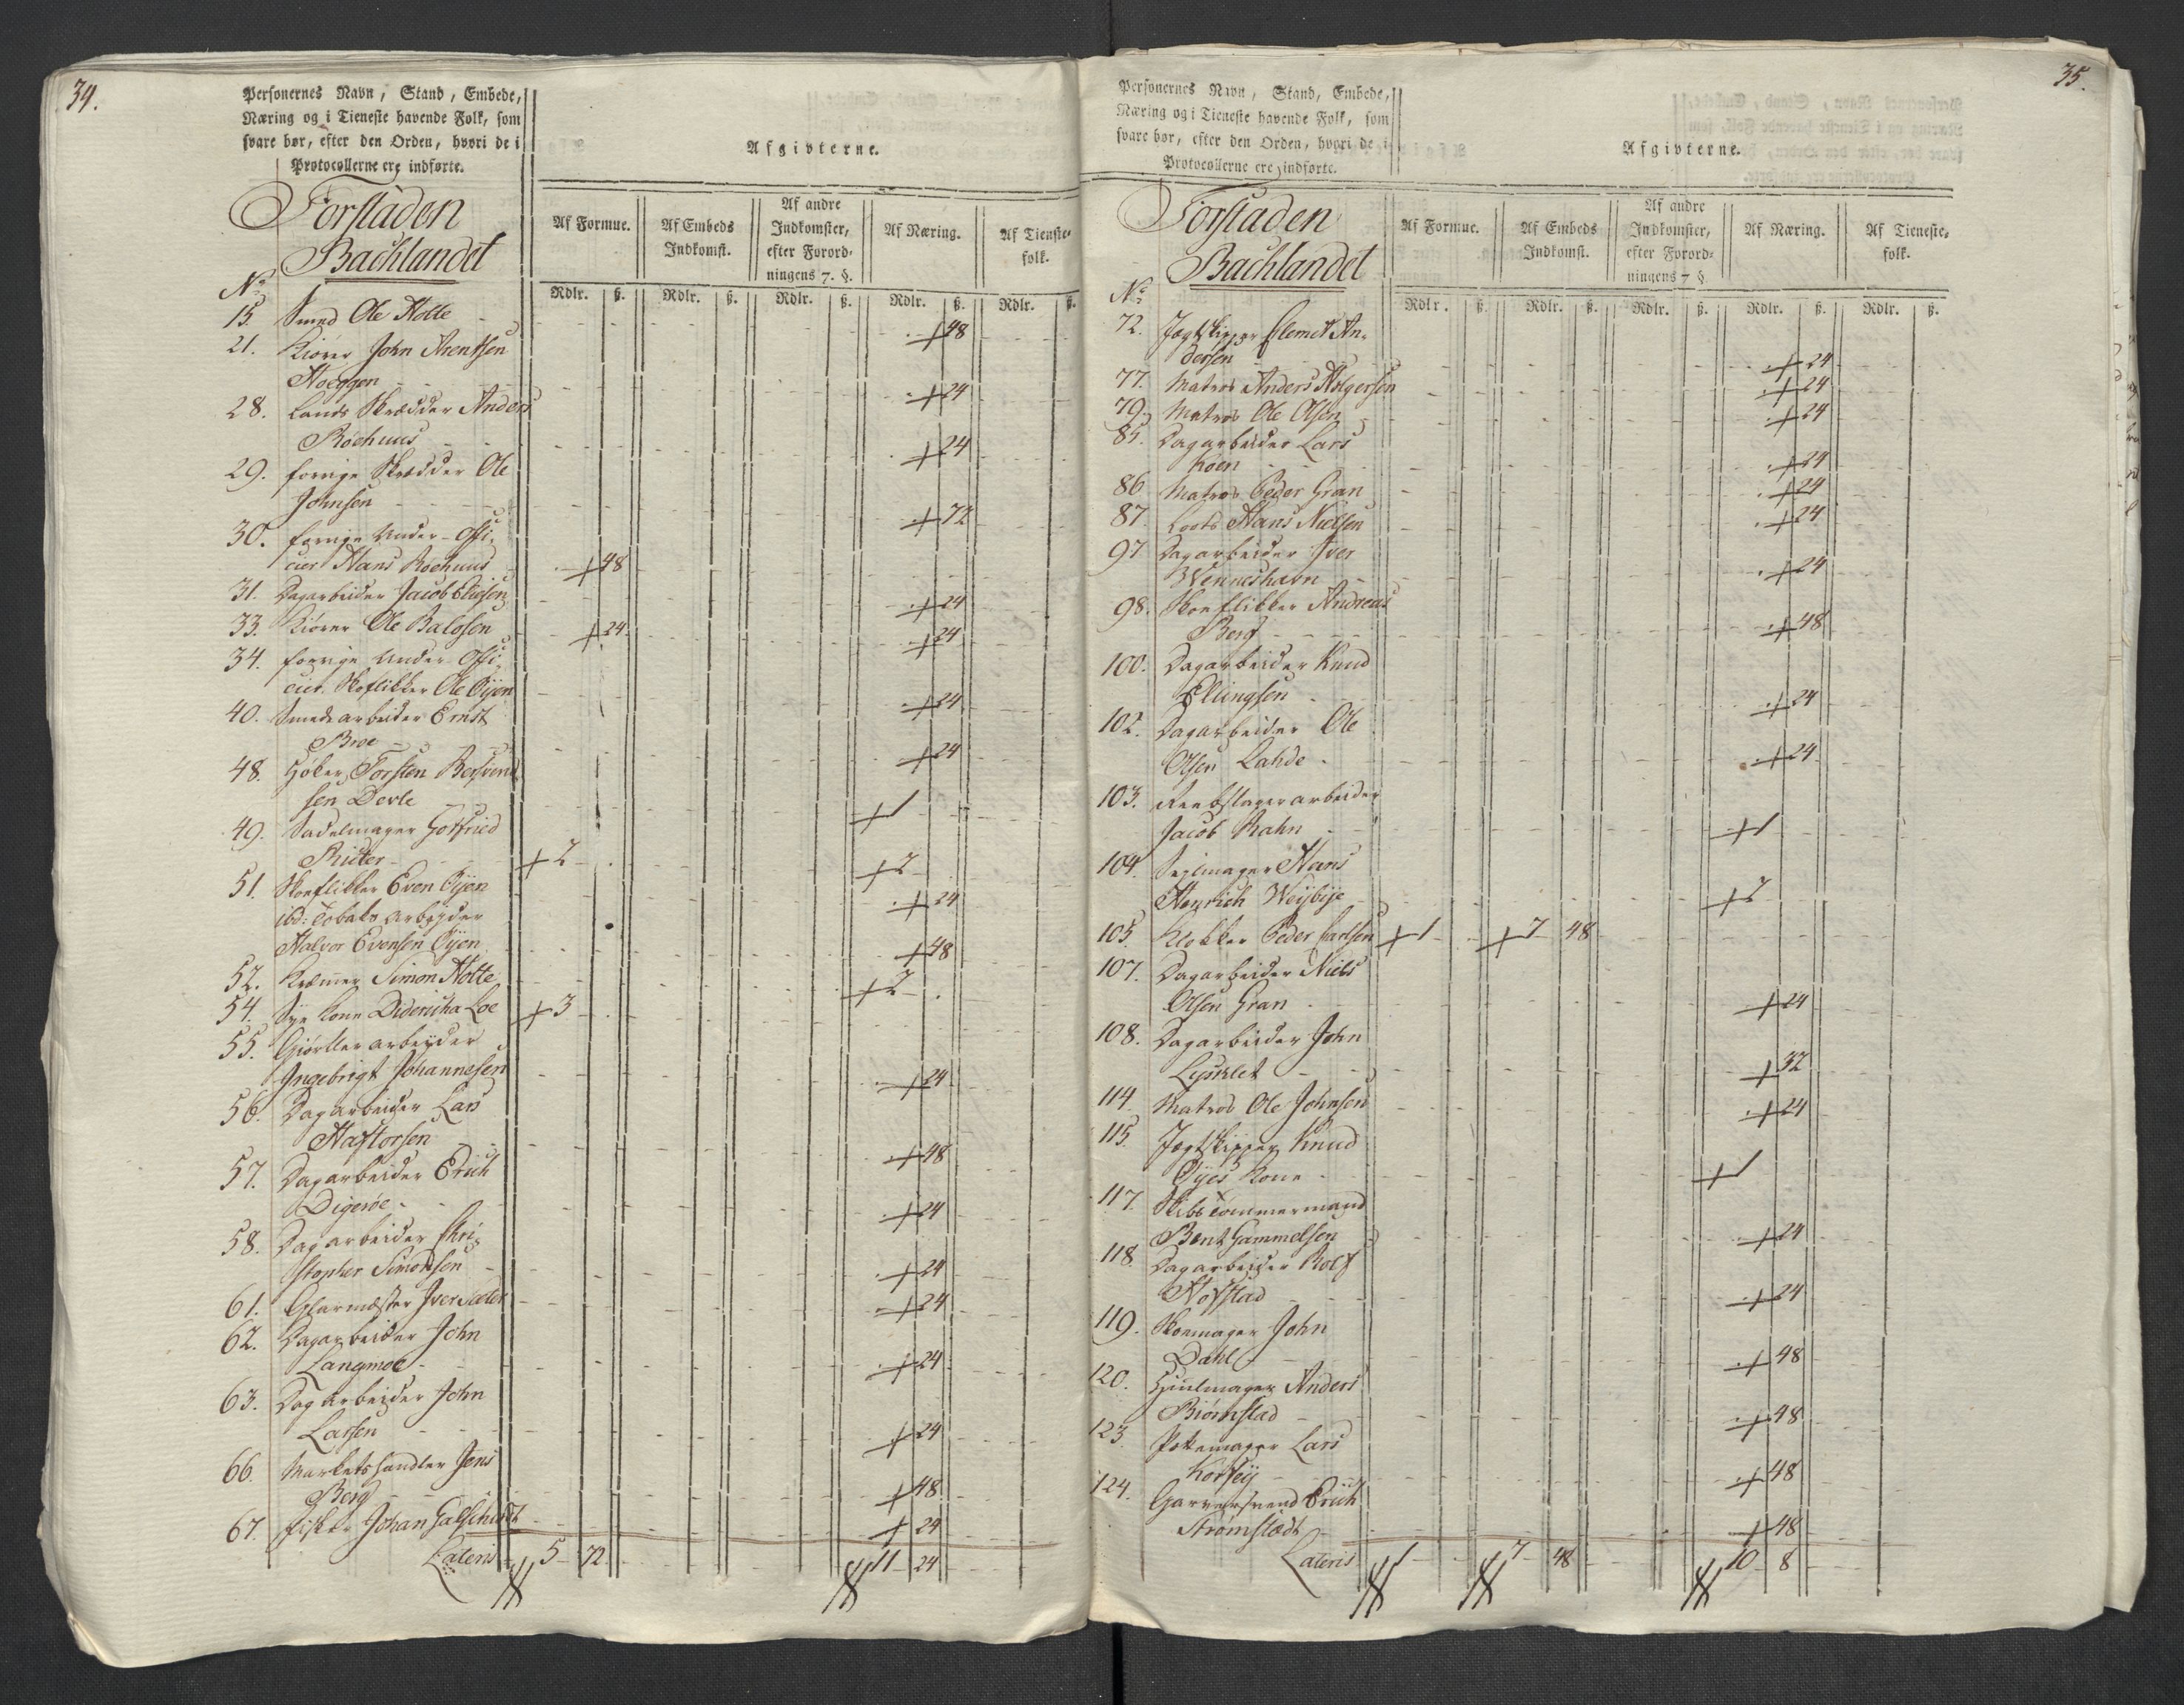 34.
Personernes Navn, Stand, Embede,
Næring og i Tieneste havende Folk, som
svare bør, efter den Orden, hvori de i
Protocollerne ere indførte.
Afgivterne.
Forstaden
Bachlandet
Af Formue.
Af Embeds
Indkomst.
Af andre
Indkomster,
efter Forord-
ningens 7. §.
Af Næring.
Af Tieneste-
folk.
No
Rdlr. ß. Rdlr. ß. Rdlr. ß. Rdlr. ß. Rdlr. ß.
15. Smed Ole Holte 48
21. Kiører John Arentsen
Hoeggen 24
28. Lands Skrædder Anders
Röehuus 24
29. forrige Skrædder Ole
Johnsen 72
30. forrige Under-Offi-
cier Hans Röehuus 48
31. Dagarbeider Jacob Eliesen 24
33. Kiører Ole Balosen 24 24
34. forrige Under Offi-
cier Skoflikker Ole Øyen 24
40. Smedearbeider Ernst
Broe 24
48. Høker Torsten Bersvend
sen Devle 1
49. Sadelmager Gotfried
Richter 2 2
51. Skoeflikker Even Øyen 24
ibd: Tobaks arbeyder
Halvor Evensen Øyen 48
52. Kræmer Simon Holte 2
54. Sye Kone Didericha Loe 3
55. Giørtler arbeyder
Ingebrigt Johannesen 24
56. Dagarbeider Lars
Haftorsen 48
57. Dagarbeider Erich
Digerøe 24
58. Dagarbeider Chri-
stopher Simonsen 24
61. Glarmester Iver Sæter 24
62. Dagarbeider John
Langmoe 24
63. Dagarbeider John
Larsen 24
66. Markets handler Jens
Berg 48
67. Fisker Johan Galschiødt 24
Lateris 5 72 11 24
35.
Personernes Navn, Stand, Embede,
Næring og i Tieneste havende Folk, som
svare bør, efter den Orden, hvori de i
Protocollerne ere indførte.
Afgivterne.
Forstaden
Bachlandet
Af Formue.
Af Embeds
Indkomst.
Af andre
Indkomster,
efter Forord-
ningens 7 §.
Af Næring.
Af Tieneste-
folk.
No
Rdlr. ß. Rdlr. ß. Rdlr. ß. Rdlr. ß. Rdlr. ß.
72. Jagtskipper Clemet An-
dersen 24
77. Matros Anders Holgersen 24
79. Matros Ole Olsen 24
85. Dagarbeider Lars
Koen 24
86 Matros Peder Gran 24
87. Loots Hans Nielsen 24
97 Dagarbeider Iver
Wenneshavn 24
98. Skoeflikker Andreas
Berg 48
100. Dagarbeider Knud
Ellingsen 24
102. Dagarbeider Ole
Olsen Lahde 24
103. Reebslagerarbeider
Jacob Rahn 1
104. Seylmager Hans
Henrich Weybye 2
105. Klokker Peder Carlsen 1 7 48
107. Dagarbeider Niels
Olsen Gran 24
108. Dagarbeider John
Lysklet 32
114. Matros Ole Johnsen 24
115. Jagtskipper Knud
Øyes Kone 1
117. Skibstømmermand
Bent Gammelsen 24
118. Dagarbeider Rolf
Hofstad 24
119. Skoemager John
Dahl 48
120. Hiulmager Anders
Biørnstad 48
123. Pottemager Lars
Korsey 48
124. Garversvend Erich
Strømstædt 48
Lateris 1 7 48 10 8